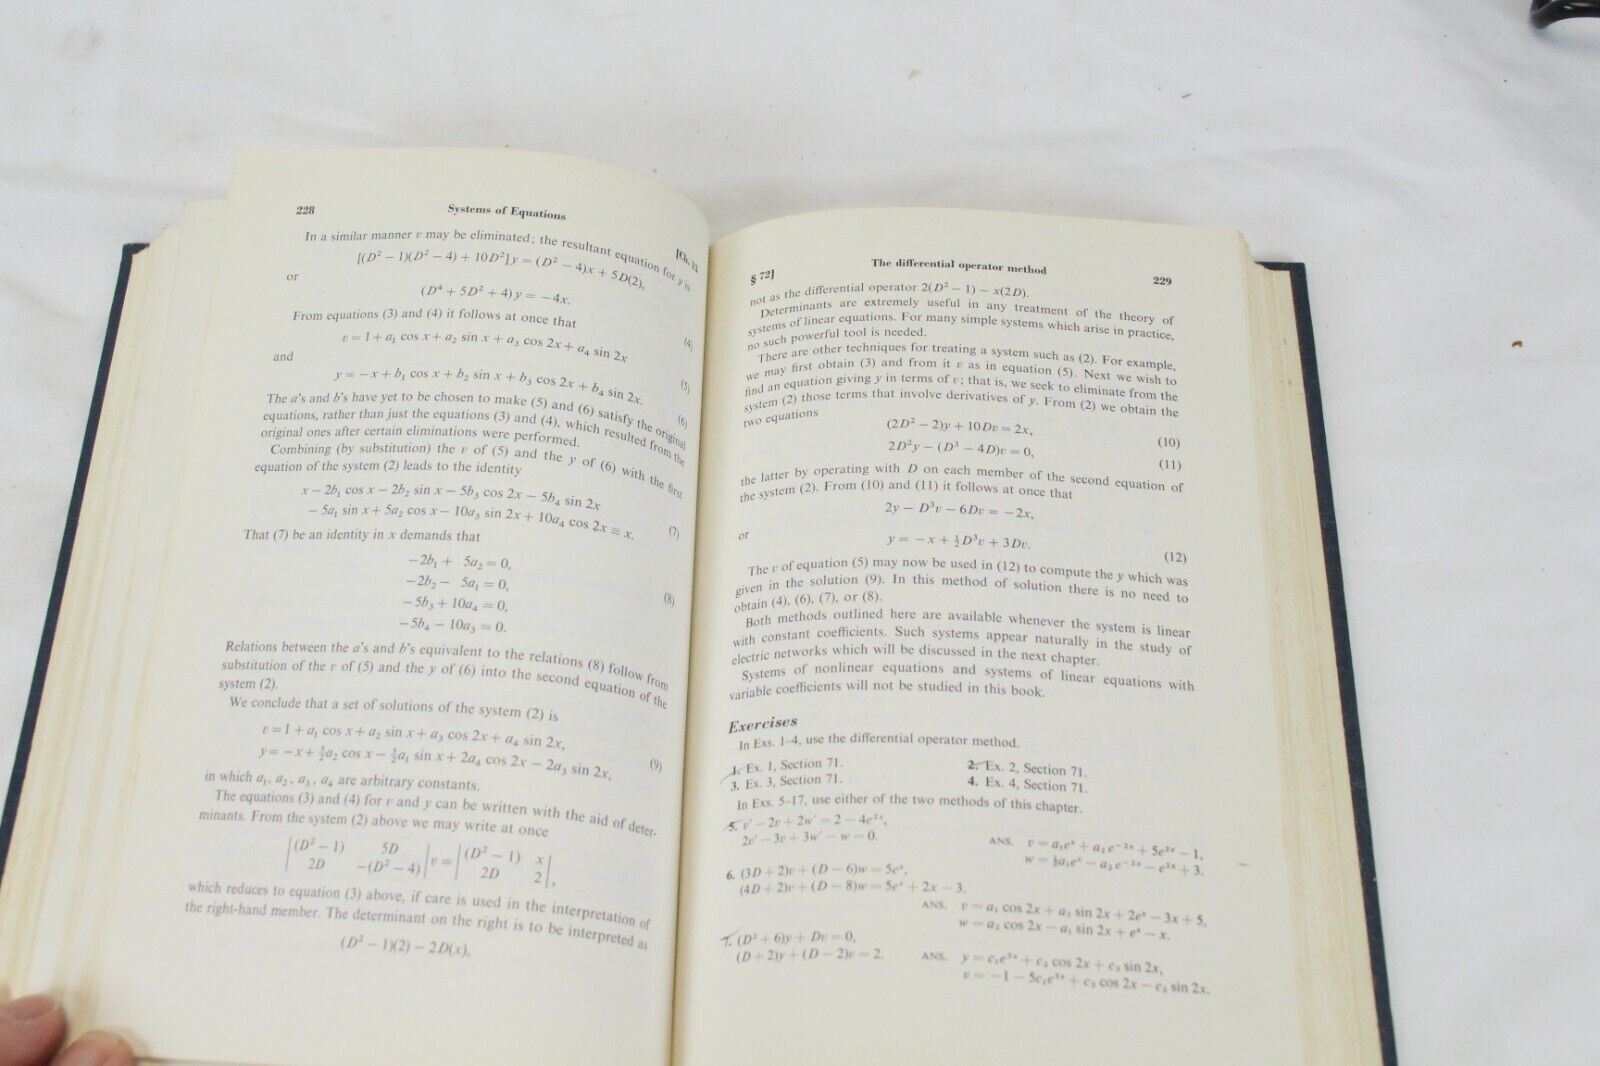 228
Systems of Equations
[Ch. 12
In a similar manner v may be eliminated; the resultant equation for y is
[(D² − 1)(D² − 4) + 10D²]y = (D² − 4)x + 5D(2),
or
(D⁴ + 5D² + 4)y = −4x. (4)
From equations (3) and (4) it follows at once that
v = 1 + a₁ cos x + a₂ sin x + a₃ cos 2x + a₄ sin 2x (5)
and
y = −x + b₁ cos x + b₂ sin x + b₃ cos 2x + b₄ sin 2x. (6)
The a's and b's have yet to be chosen to make (5) and (6) satisfy the original
equations, rather than just the equations (3) and (4), which resulted from the
original ones after certain eliminations were performed.
Combining (by substitution) the v of (5) and the y of (6) with the first
equation of the system (2) leads to the identity
x − 2b₁ cos x − 2b₂ sin x − 5b₃ cos 2x − 5b₄ sin 2x
− 5a₁ sin x + 5a₂ cos x − 10a₃ sin 2x + 10a₄ cos 2x ≡ x. (7)
That (7) be an identity in x demands that
−2b₁ + 5a₂ = 0,
−2b₂ − 5a₁ = 0,
−5b₃ + 10a₄ = 0, (8)
−5b₄ − 10a₃ = 0.
Relations between the a's and b's equivalent to the relations (8) follow from
substitution of the v of (5) and the y of (6) into the second equation of the
system (2).
We conclude that a set of solutions of the system (2) is
v = 1 + a₁ cos x + a₂ sin x + a₃ cos 2x + a₄ sin 2x,
y = −x + ½a₂ cos x − ½a₁ sin x + 2a₄ cos 2x − 2a₃ sin 2x, (9)
in which a₁, a₂, a₃, a₄ are arbitrary constants.
The equations (3) and (4) for v and y can be written with the aid of deter-
minants. From the system (2) above we may write at once
|(D² − 1) 5D| v = |(D² − 1) x|
|2D −(D² − 4)| |2D 2|,
which reduces to equation (3) above, if care is used in the interpretation of
the right-hand member. The determinant on the right is to be interpreted as
(D² − 1)(2) − 2D(x),
§ 72]
The differential operator method
229
not as the differential operator 2(D² − 1) − x(2D).
Determinants are extremely useful in any treatment of the theory of
systems of linear equations. For many simple systems which arise in practice,
no such powerful tool is needed.
There are other techniques for treating a system such as (2). For example,
we may first obtain (3) and from it v as in equation (5). Next we wish to
find an equation giving y in terms of v; that is, we seek to eliminate from the
system (2) those terms that involve derivatives of y. From (2) we obtain the
two equations
(2D² − 2)y + 10Dv = 2x, (10)
2D²y − (D³ − 4D)v = 0, (11)
the latter by operating with D on each member of the second equation of
the system (2). From (10) and (11) it follows at once that
2y − D³v − 6Dv = −2x,
or
y = −x + ½D³v + 3Dv. (12)
The v of equation (5) may now be used in (12) to compute the y which was
given in the solution (9). In this method of solution there is no need to
obtain (4), (6), (7), or (8).
Both methods outlined here are available whenever the system is linear
with constant coefficients. Such systems appear naturally in the study of
electric networks which will be discussed in the next chapter.
Systems of nonlinear equations and systems of linear equations with
variable coefficients will not be studied in this book.
Exercises
In Exs. 1–4, use the differential operator method.
1. Ex. 1, Section 71. 2. Ex. 2, Section 71.
3. Ex. 3, Section 71. 4. Ex. 4, Section 71.
In Exs. 5–17, use either of the two methods of this chapter.
5. v′ − 2v + 2w′ = 2 − 4e²ˣ,
2v′ − 3v + 3w′ − w = 0. ANS. v = a₁eˣ + a₂e⁻²ˣ + 5e²ˣ − 1,
w = ½a₁eˣ − a₂e⁻²ˣ − e²ˣ + 3.
6. (3D + 2)v + (D − 6)w = 5eˣ,
(4D + 2)v + (D − 8)w = 5eˣ + 2x − 3.
ANS. v = a₁ cos 2x + a₂ sin 2x + 2eˣ − 3x + 5,
w = a₂ cos 2x − a₁ sin 2x + eˣ − x.
7. (D² + 6)y + Dv = 0,
(D + 2)y + (D − 2)v = 2. ANS. y = c₁e³ˣ + c₂ cos 2x + c₃ sin 2x,
v = −1 − 5c₁e³ˣ + c₃ cos 2x − c₂ sin 2x.